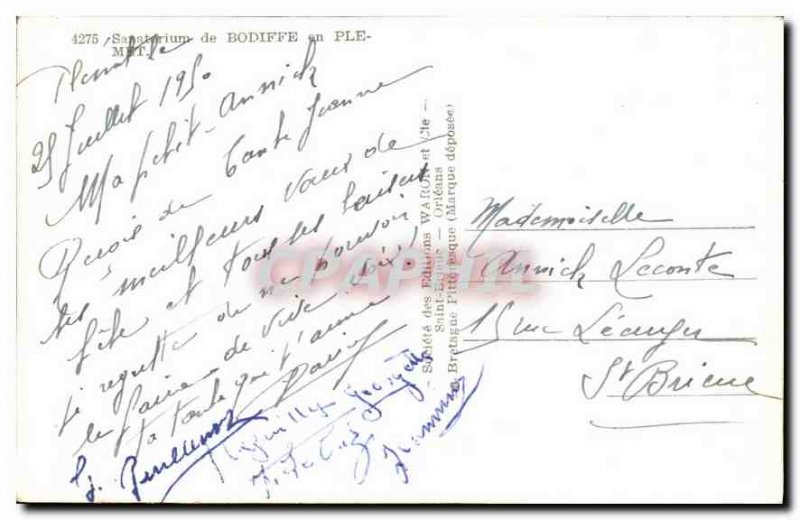 4275 Sanatorium de BODIFFE en PLE-
MET.
25 Juillet 1950
Ma petite Annick
Reçois de tante Jeanne
tes meilleurs vœux de
fête et tous ses baisers
Je regrette de ne pouvoir
le faire de vive voix!
Ta tante qui t'aime
Georgette
Jeannine
Société des Editions WARON et Cie —
Saint-Brieuc — Orléans
La Bretagne Pittoresque (Marque déposée)
Mademoiselle
Annick Leconte
15 rue
St Brieuc
CPAPHIL